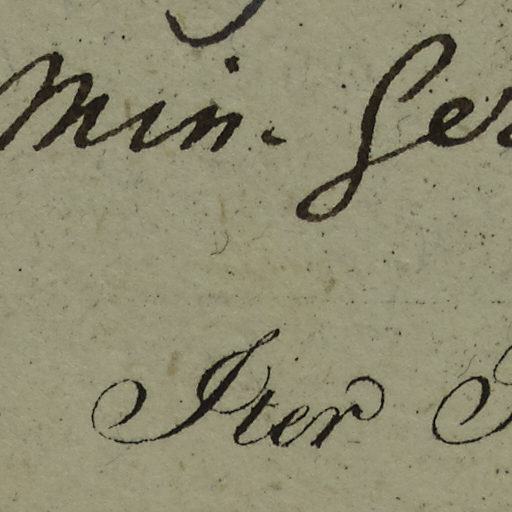 Min. Ger
Iter